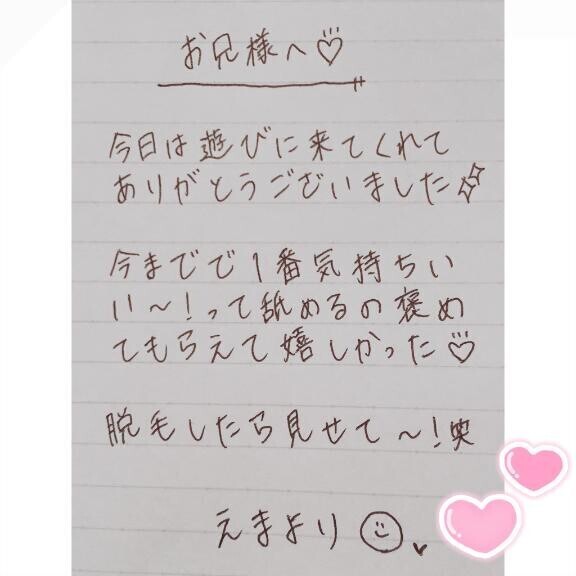 お兄様へ♡
今日は遊びに来てくれて
ありがとうございました✨
今までで1番気持ちい
い〜!って舐めるの褒め
てもらえて嬉しかった♡
脱毛したら見せて〜!笑
えまより